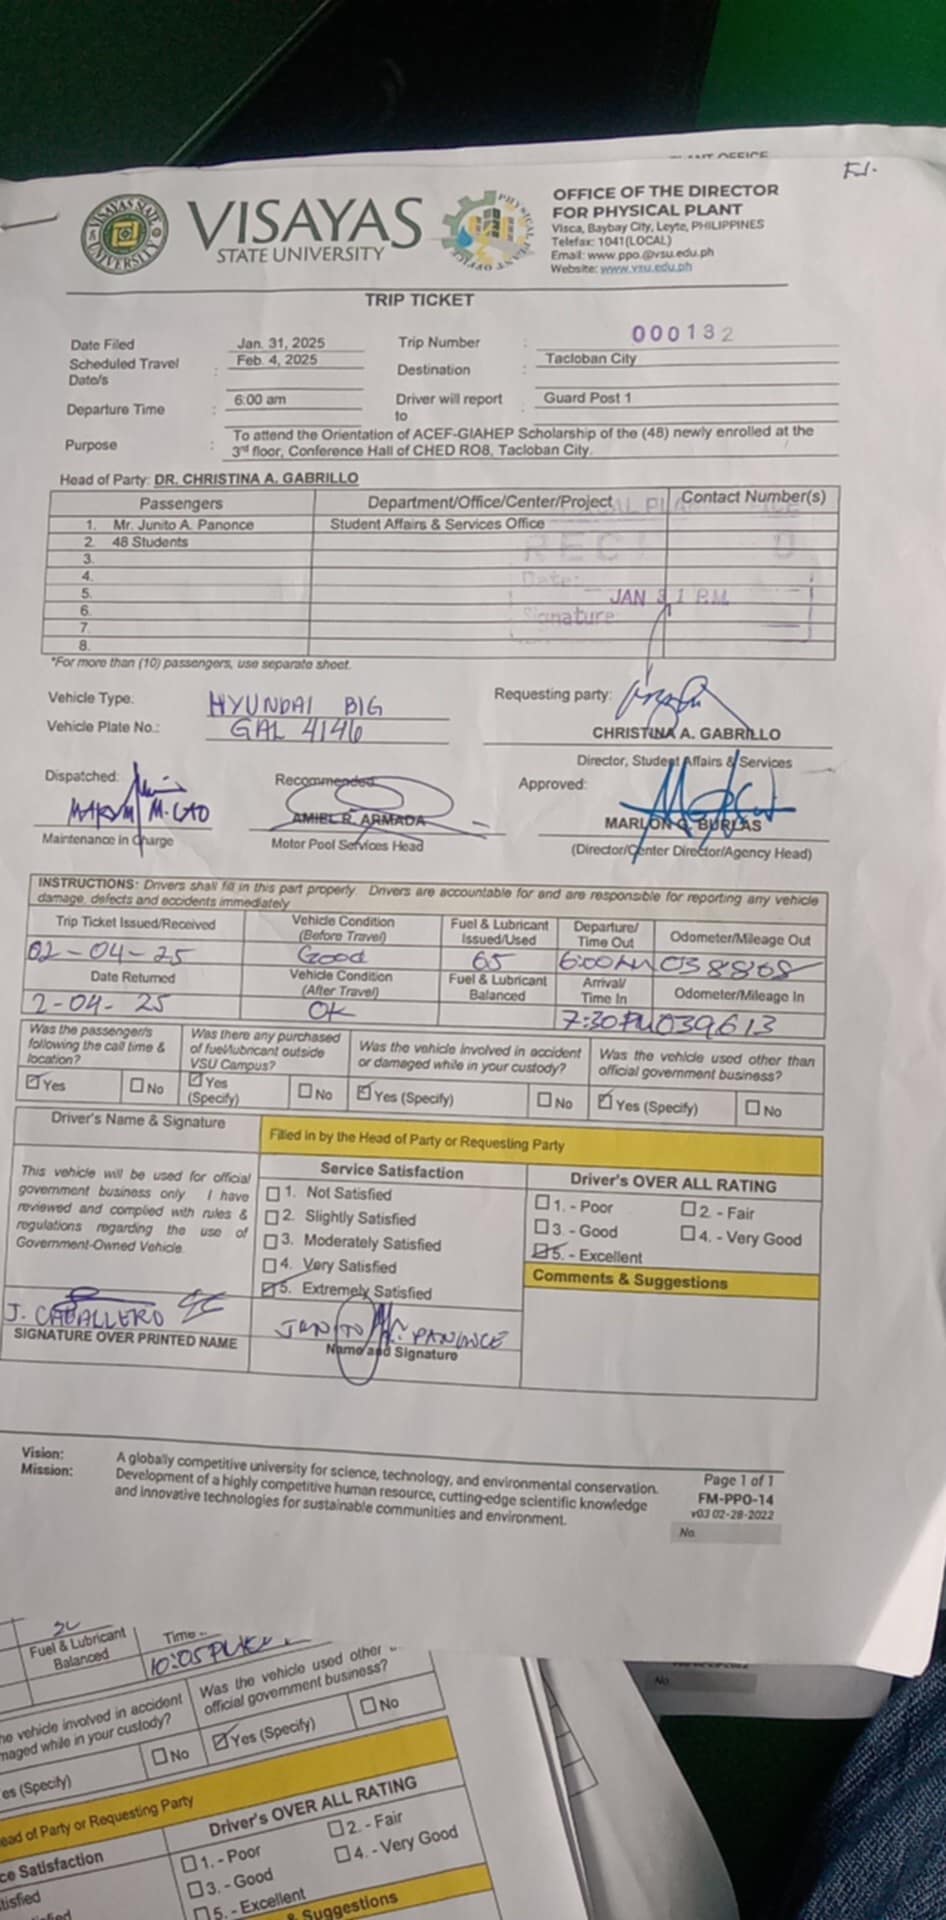 ANT OFFICE
VISAYAS
STATE UNIVERSITY
VISAYAS STATE UNIVERSITY
PHYSICAL PLANT OFFICE
OFFICE OF THE DIRECTOR
FOR PHYSICAL PLANT
Visca, Baybay City, Leyte, PHILIPPINES
Telefax: 1041(LOCAL)
Email: www.ppo.@vsu.edu.ph
Website: www.vsu.edu.ph
TRIP TICKET
Date Filed Jan. 31, 2025 Trip Number : 000132
Scheduled Travel Date/s : Feb. 4, 2025 Destination : Tacloban City
Departure Time : 6:00 am Driver will report to : Guard Post 1
Purpose : To attend the Orientation of ACEF-GIAHEP Scholarship of the (48) newly enrolled at the
3rd floor, Conference Hall of CHED RO8, Tacloban City.
Head of Party: DR. CHRISTINA A. GABRILLO
Passengers Department/Office/Center/Project Contact Number(s)
1. Mr. Junito A. Panonce Student Affairs & Services Office
2. 48 Students
3.
4.
5.
6.
7.
8.
Date:
JAN 31 P.M.
Signature
*For more than (10) passengers, use separate sheet.
Vehicle Type: HYUNDAI BIG
Vehicle Plate No.: GAL 4146
Requesting party:
CHRISTINA A. GABRILLO
Director, Student Affairs & Services
Dispatched: Recommended Approved:
MARVIN M. CAO AMIEL R. ARMADA MARLON G. BURLAS
Maintenance in Charge Motor Pool Services Head (Director/Center Director/Agency Head)
INSTRUCTIONS: Drivers shall fill in this part properly. Drivers are accountable for and are responsible for reporting any vehicle
damage, defects and accidents immediately
Trip Ticket Issued/Received Vehicle Condition (Before Travel) Fuel & Lubricant Issued/Used Departure/ Time Out Odometer/Mileage Out
02-04-25 Good 65 6:00AM 038868
Date Returned Vehicle Condition (After Travel) Fuel & Lubricant Balanced Arrival/ Time In Odometer/Mileage In
2-04-25 OK 7:30PM 039613
Was the passenger/s following the call time & location? Was there any purchased of fuel/lubricant outside VSU Campus? Was the vehicle involved in accident or damaged while in your custody? Was the vehicle used other than official government business?
Yes No Yes (Specify) No Yes (Specify) No Yes (Specify) No
Driver's Name & Signature
Filled in by the Head of Party or Requesting Party
This vehicle will be used for official
government business only I have
reviewed and complied with rules &
regulations regarding the use of
Government-Owned Vehicle.
J. CABALLERO
SIGNATURE OVER PRINTED NAME
Service Satisfaction
1. Not Satisfied
2. Slightly Satisfied
3. Moderately Satisfied
4. Very Satisfied
5. Extremely Satisfied
JUNITO A. PANONCE
Name and Signature
Driver's OVER ALL RATING
1. - Poor 2. - Fair
3. - Good 4. - Very Good
5. - Excellent
Comments & Suggestions
Vision: A globally competitive university for science, technology, and environmental conservation.
Mission: Development of a highly competitive human resource, cutting-edge scientific knowledge
and innovative technologies for sustainable communities and environment.
Page 1 of 1
FM-PPO-14
v03 02-28-2022
No.
Fuel & Lubricant Balanced
Time
10:05PM
vehicle involved in accident
maged while in your custody?
Was the vehicle used other
official government business?
es (Specify) No Yes (Specify) No
ead of Party or Requesting Party
ce Satisfaction
tisfied
Driver's OVER ALL RATING
1. - Poor 2. - Fair
3. - Good 4. - Very Good
5. - Excellent
& Suggestions
No.